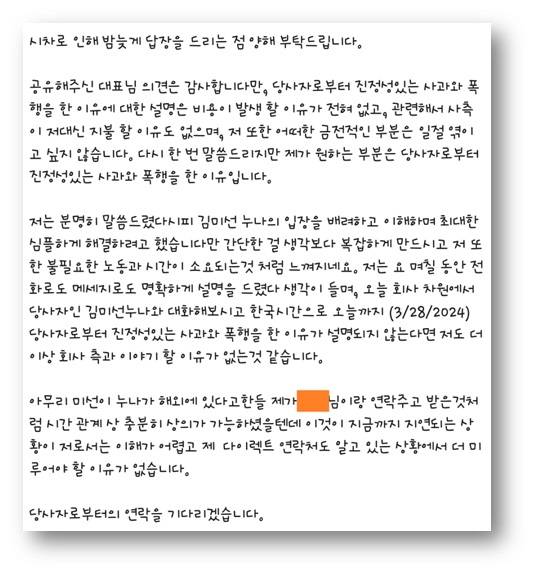 시차로 인해 밤늦게 답장을 드리는 점 양해 부탁드립니다.
공유해주신 대표님 의견은 감사합니다만, 당사자로부터 진정성있는 사과와 폭
행을 한 이유에 대한 설명은 비용이 발생 할 이유가 전혀 없고, 관련해서 사측
이 저대신 지불 할 이유도 없으며, 저 또한 어떠한 금전적인 부분은 일절 엮이
고 싶지 않습니다. 다시 한 번 말씀드리지만 제가 원하는 부분은 당사자로부터
진정성있는 사과와 폭행을 한 이유입니다.
저는 분명히 말씀드렸다시피 김미선 누나의 입장을 배려하고 이해하며 최대한
심플하게 해결하려고 했습니다만 간단한 걸 생각보다 복잡하게 만드시고 저 또
한 불필요한 노동과 시간이 소요되는것 처럼 느껴지네요. 저는 요 며칠 동안 전
화로도 메세지로도 명확하게 설명을 드렸다 생각이 들며, 오늘 회사 차원에서
당사자인 김미선누나와 대화해보시고 한국시간으로 오늘까지 (3/28/2024)
당사자로부터 진정성있는 사과와 폭행을 한 이유가 설명되지 않는다면 저도 더
이상 회사 측과 이야기 할 이유가 없는것 같습니다.
아무리 미선이 누나가 해외에 있다고한들 제가 님이랑 연락주고 받은것처
럼 시간 관계 상 충분히 상의가 가능하셨을텐데 이것이 지금까지 지연되는 상
황이 저로서는 이해가 어렵고 제 다이렉트 연락처도 알고 있는 상황에서 더 미
루어야 할 이유가 없습니다.
당사자로부터의 연락을 기다리겠습니다.